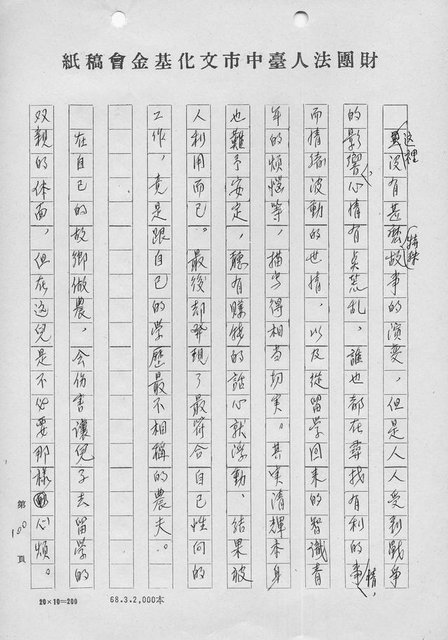 財團法人臺中市文化基金會稿紙
這裡並沒有甚麼特殊故事的演變，但是人人受到戰爭
的影響，心情有点荒乱，誰也都在尋找有利的事情，
而情緒波動的世情，以及從留学回來的智識青
年的煩惱等，描寫得相当切実。其実清輝本身
也難予安定，聽有賺錢的話心就浮動，結果被
人利用而已。最後却発現了最符合自己性向的
工作，竟是跟自己的学歷最不相稱的農夫。
在自己的故鄉做農，会伤害讓兒子去留学的
双親的体面，但在这兒是不必要那樣心煩。
第100頁
20×10=200
68.3.2,000本